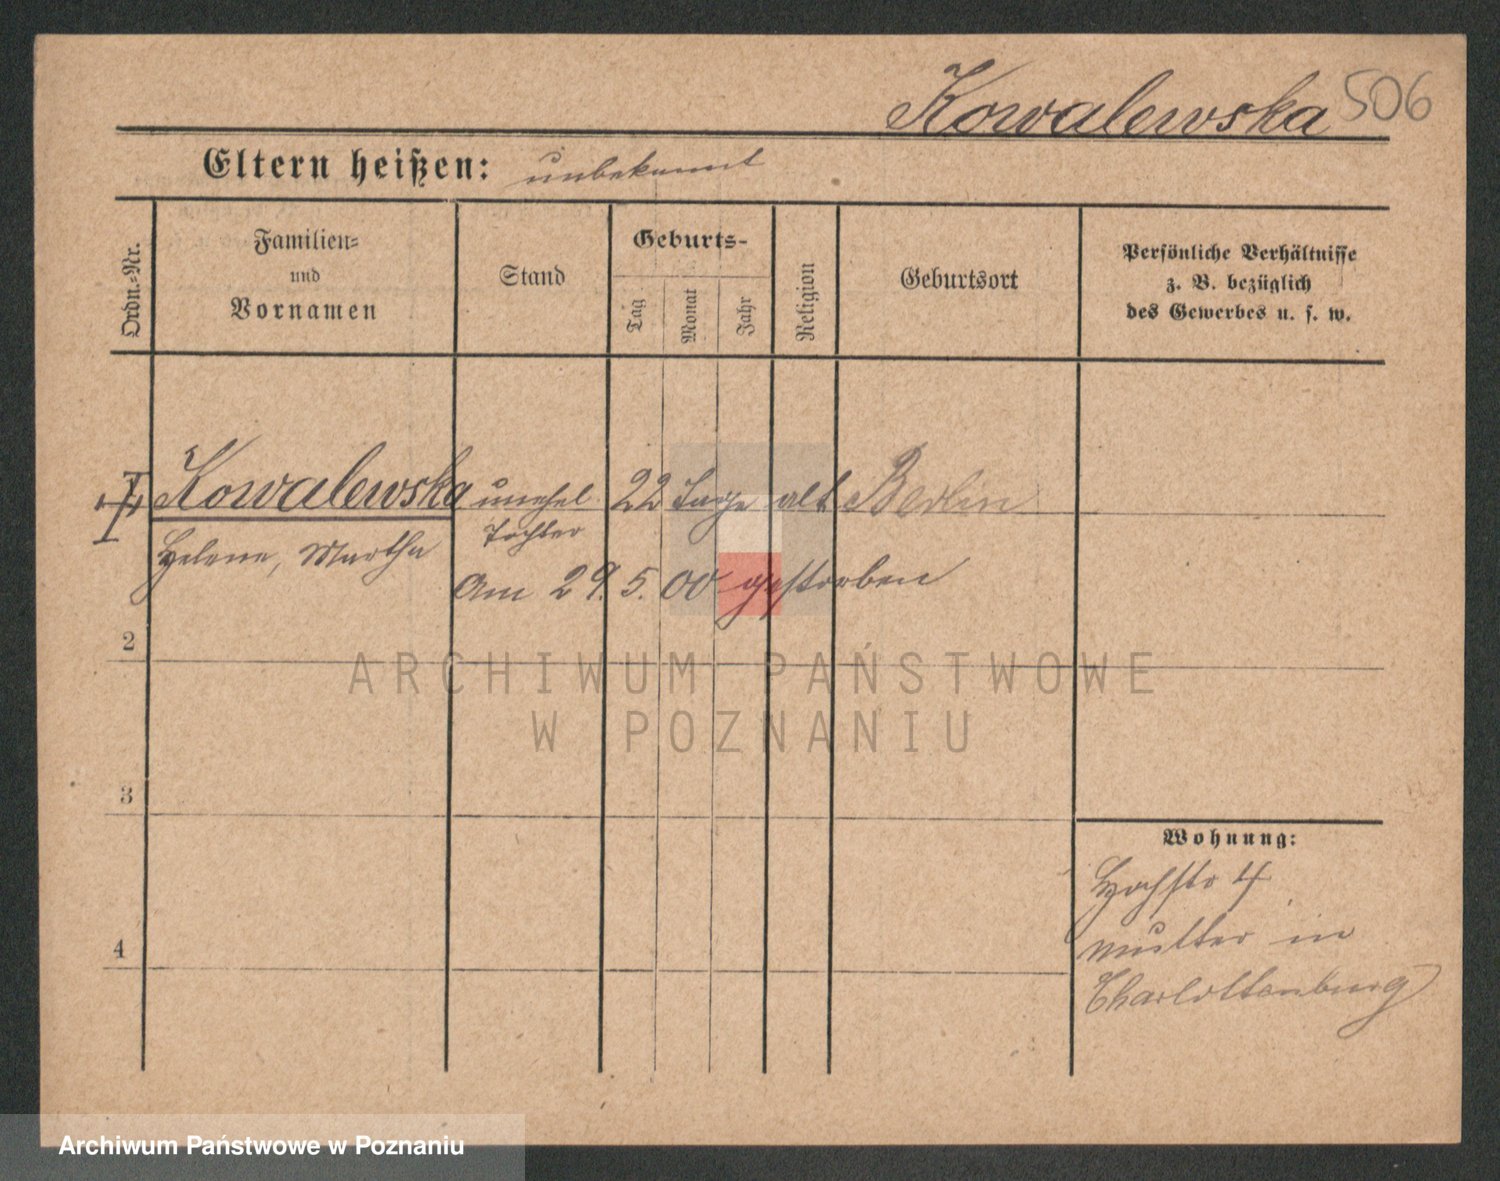 Kowalewska 506
Eltern heißen: unbekannt
Ordn.-Nr.
Familien-
und
Vornamen
Stand
Geburts-
Tag
Monat
Jahr
Religion
Geburtsort
Persönliche Verhältnisse
z. B. bezüglich
des Gewerbes u. s. w.
Kowalewska unehel. 22 Tage alt Berlin
Helene, Martha Tochter
Am 29. 5. 00 gestorben
2
ARCHIWUM PAŃSTWOWE
W POZNANIU
3
Wohnung:
Hochstr 4.
Mutter in
Charlottenburg
4
Archiwum Państwowe w Poznaniu